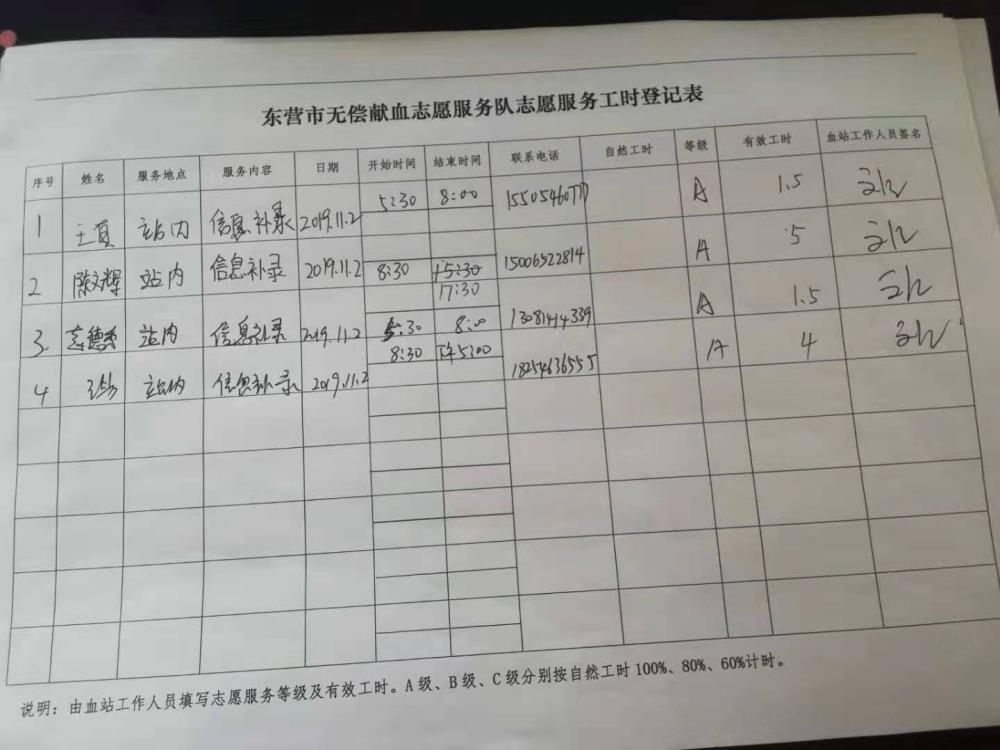 东营市无偿献血志愿服务队志愿服务工时登记表
序号 姓名 服务地点 服务内容 日期 开始时间 结束时间 联系电话 自然工时 等级 有效工时 血站工作人员签名
1 站内 信息补录 2019.11.2 5:30 8:00 A 1.5
2 陈文辉 站内 信息补录 2019.11.2 8:30 15:30 17:30 15006522814 A 5
3. 站内 信息补录 2019.11.2 :30 8:00 13081414339 A 1.5
4 站内 信息补录 2019.11.2 8:30 下午5:00 18254636555 A 4
说明：由血站工作人员填写志愿服务等级及有效工时。A级、B级、C级分别按自然工时100%、80%、60%计时。